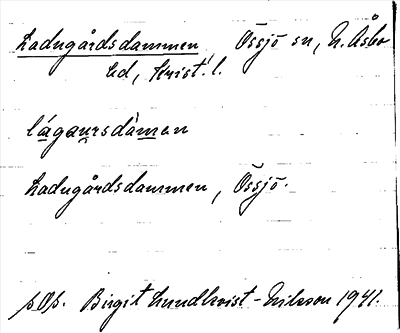 Ladugårdsdammen, Össjö sn, N. Åsbo
hd, Krist. l.
lágau̯rsdàmen
Ladugårdsdammen, Össjö.
p.Op. Birgit Lundkvist-Nilsson 1941.